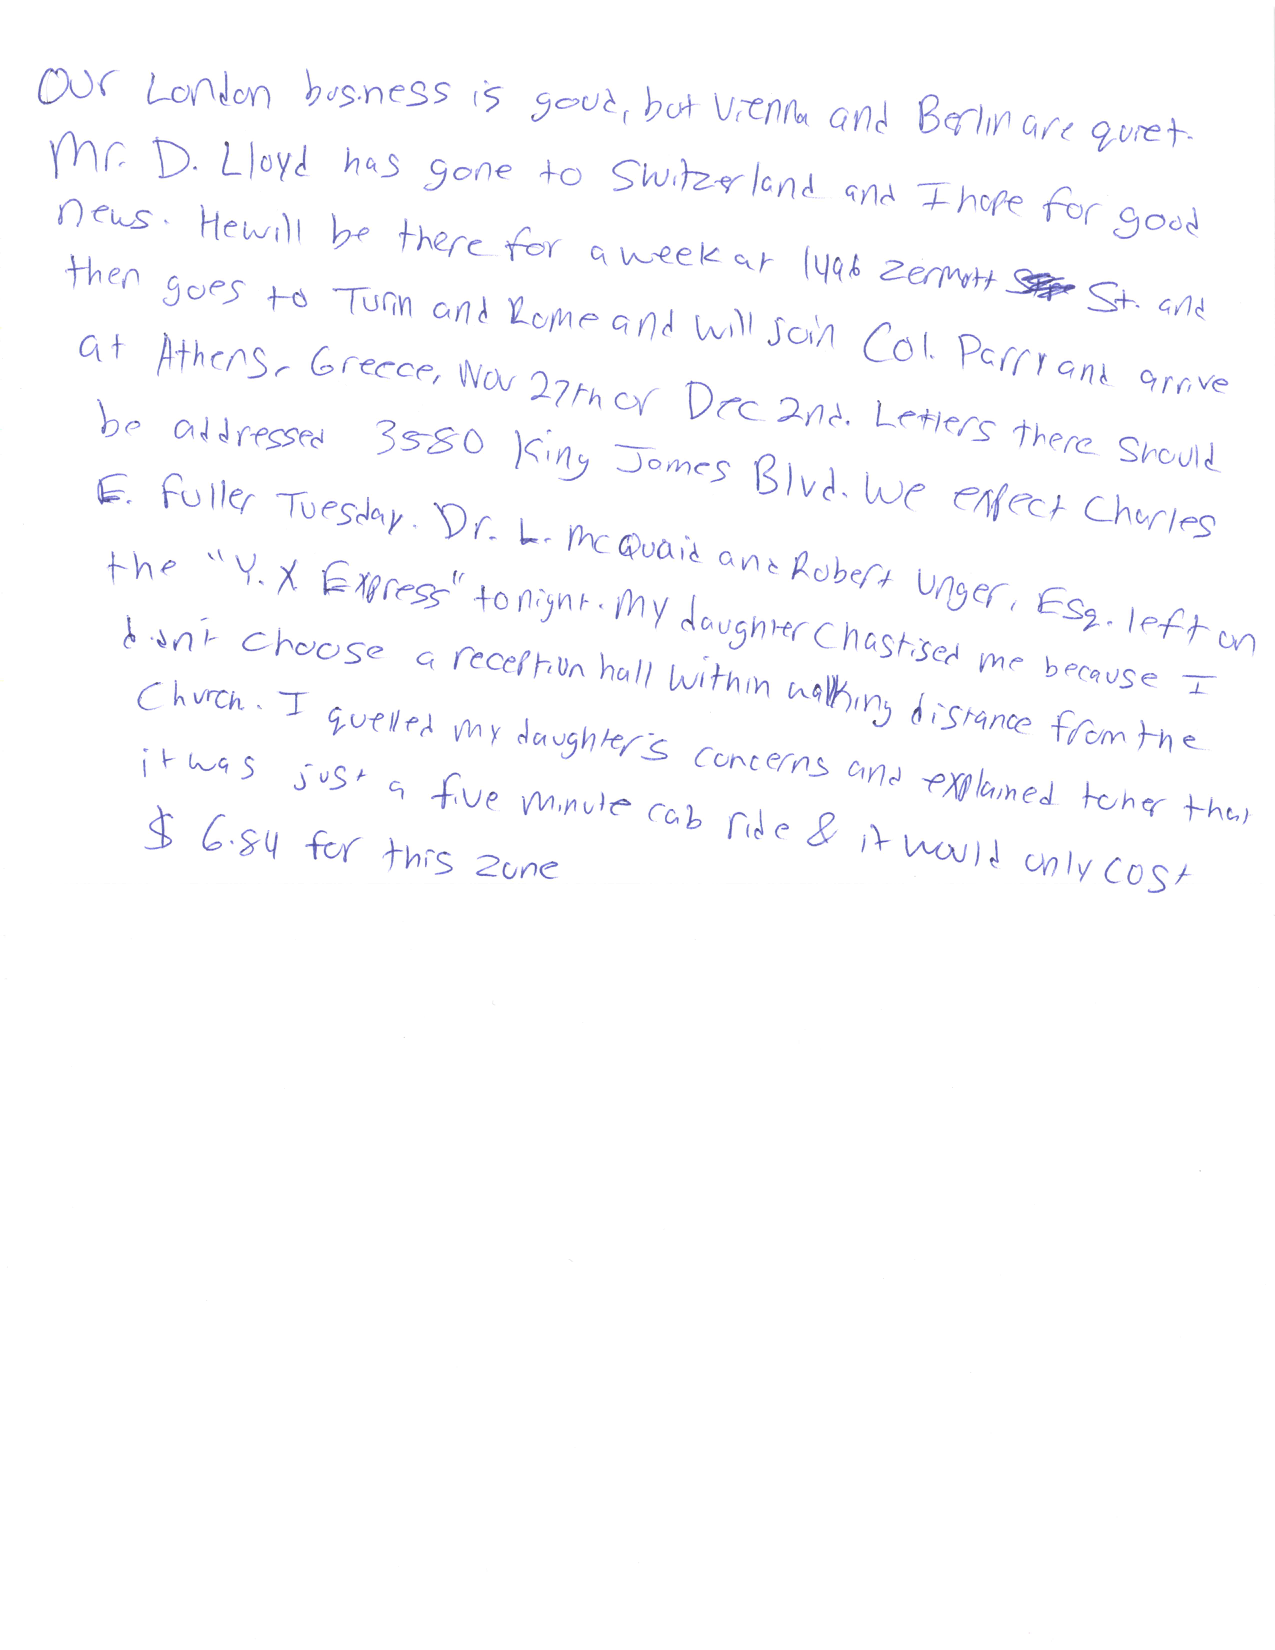 Our London business is good, but Vienna and Berlin are quiet.
Mr. D. Lloyd has gone to Switzerland and I hope for good
news. He will be there for a week at 1496 Zermott St. and
then goes to Turin and Rome and will join Col. Parry and arrive
at Athens, Greece, Nov 27th or Dec 2nd. Letters there should
be addressed 3580 King James Blvd. We expect Charles
E. Fuller Tuesday. Dr. L. McQuaid and Robert Unger, Esq. left on
the "Y. X Express" tonight. My daughter chastised me because I
didn't choose a reception hall within walking distance from the
Church. I quelled my daughter's concerns and explained to her that
it was just a five minute cab ride & it would only cost
$ 6.84 for this zone